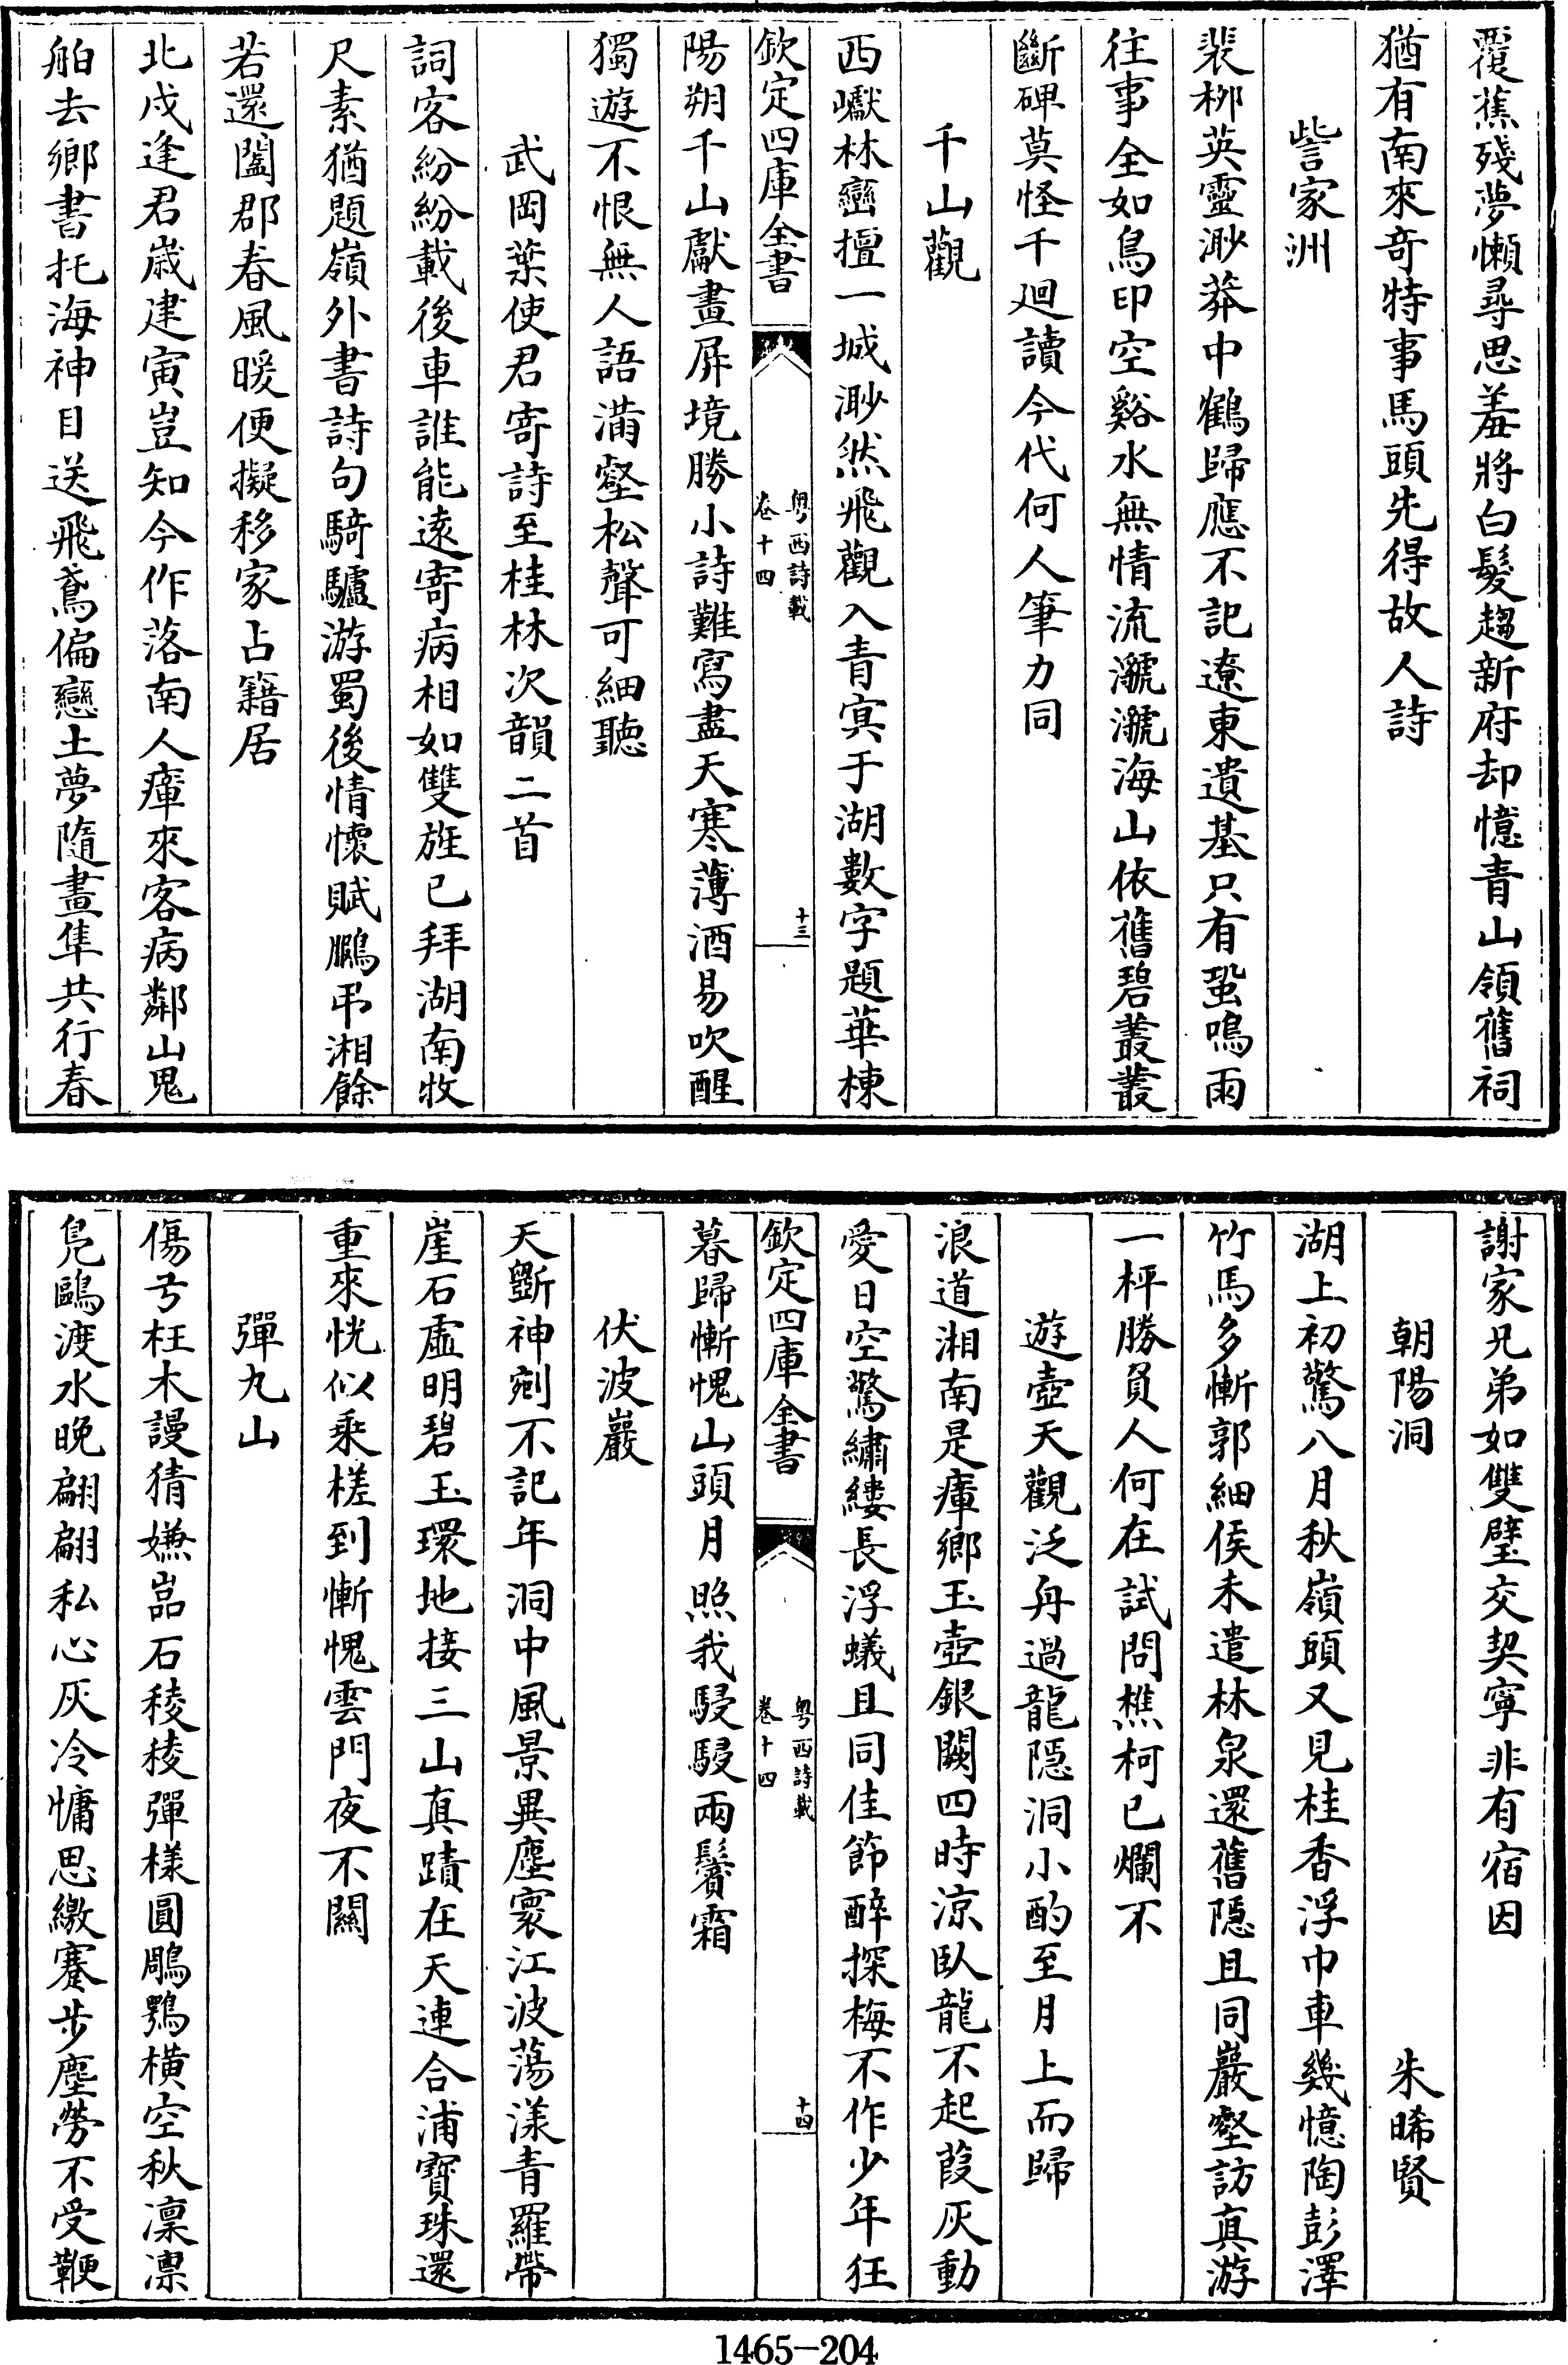 覆蕉殘夢懶尋思羞將白髮趨新府却憶青山領舊祠
猶有南來奇特事馬頭先得故人詩
訾家洲
裴栁英靈渺莽中鶴歸應不記遼東遺基只有蛩鳴雨
往事全如鳥印空谿水無情流㶁㶁海山依舊碧叢叢
斷碑莫怪千廻讀今代何人筆力同
千山觀
西巘林巒擅一城渺然飛觀入青㝠于湖數字題華棟
欽定四庫全書
粤西詩載
卷十四
十三
陽朔千山獻畫屏境勝小詩難寫盡天寒薄酒易吹醒
獨遊不恨無人語滿壑松聲可細聽
武岡葉使君寄詩至桂林次韻二首
詞客紛紛載後車誰能逺寄病相如雙旌已拜湖南牧
尺素猶題嶺外書詩句騎驢游蜀後情懷賦鵩弔湘餘
若還闔郡春風暖便擬移家占籍居
北戍逢君歲建寅豈知今作落南人瘴來客病鄰山鬼
舶去鄉書托海神目送飛鳶偏戀土夢隨畫隼共行春
謝家兄弟如雙璧交契寧非有宿因
朝陽洞
朱晞賢
湖上初驚八月秋嶺頭又見桂香浮巾車幾憶陶彭澤
竹馬多慚郭細侯未遣林泉還舊隱且同巖壑訪真游
一枰勝負人何在試問樵柯已爛不
遊壺天觀泛舟過龍隱洞小酌至月上而歸
浪道湘南是瘴鄉玉壺銀闕四時凉臥龍不起葭灰動
愛日空驚繡縷長浮蟻且同佳節醉探梅不作少年狂
欽定四庫全書
粤西詩載
卷十四
十四
暮歸慚愧山頭月照我駸駸兩鬢霜
伏波巖
天斵神剜不記年洞中風景異塵寰江波蕩漾青羅帶
崖石虛明碧玉環地接三山真蹟在天連合浦寶珠還
重來恍似乘槎到慚愧雲門夜不關
彈丸山
傷弓枉木謾猜嫌嵓石稜稜彈様圓鵰鶚橫空秋凜凜
鳬鷗渡水晚翩翩私心灰冷慵思繳蹇步塵勞不受鞭
1465-204